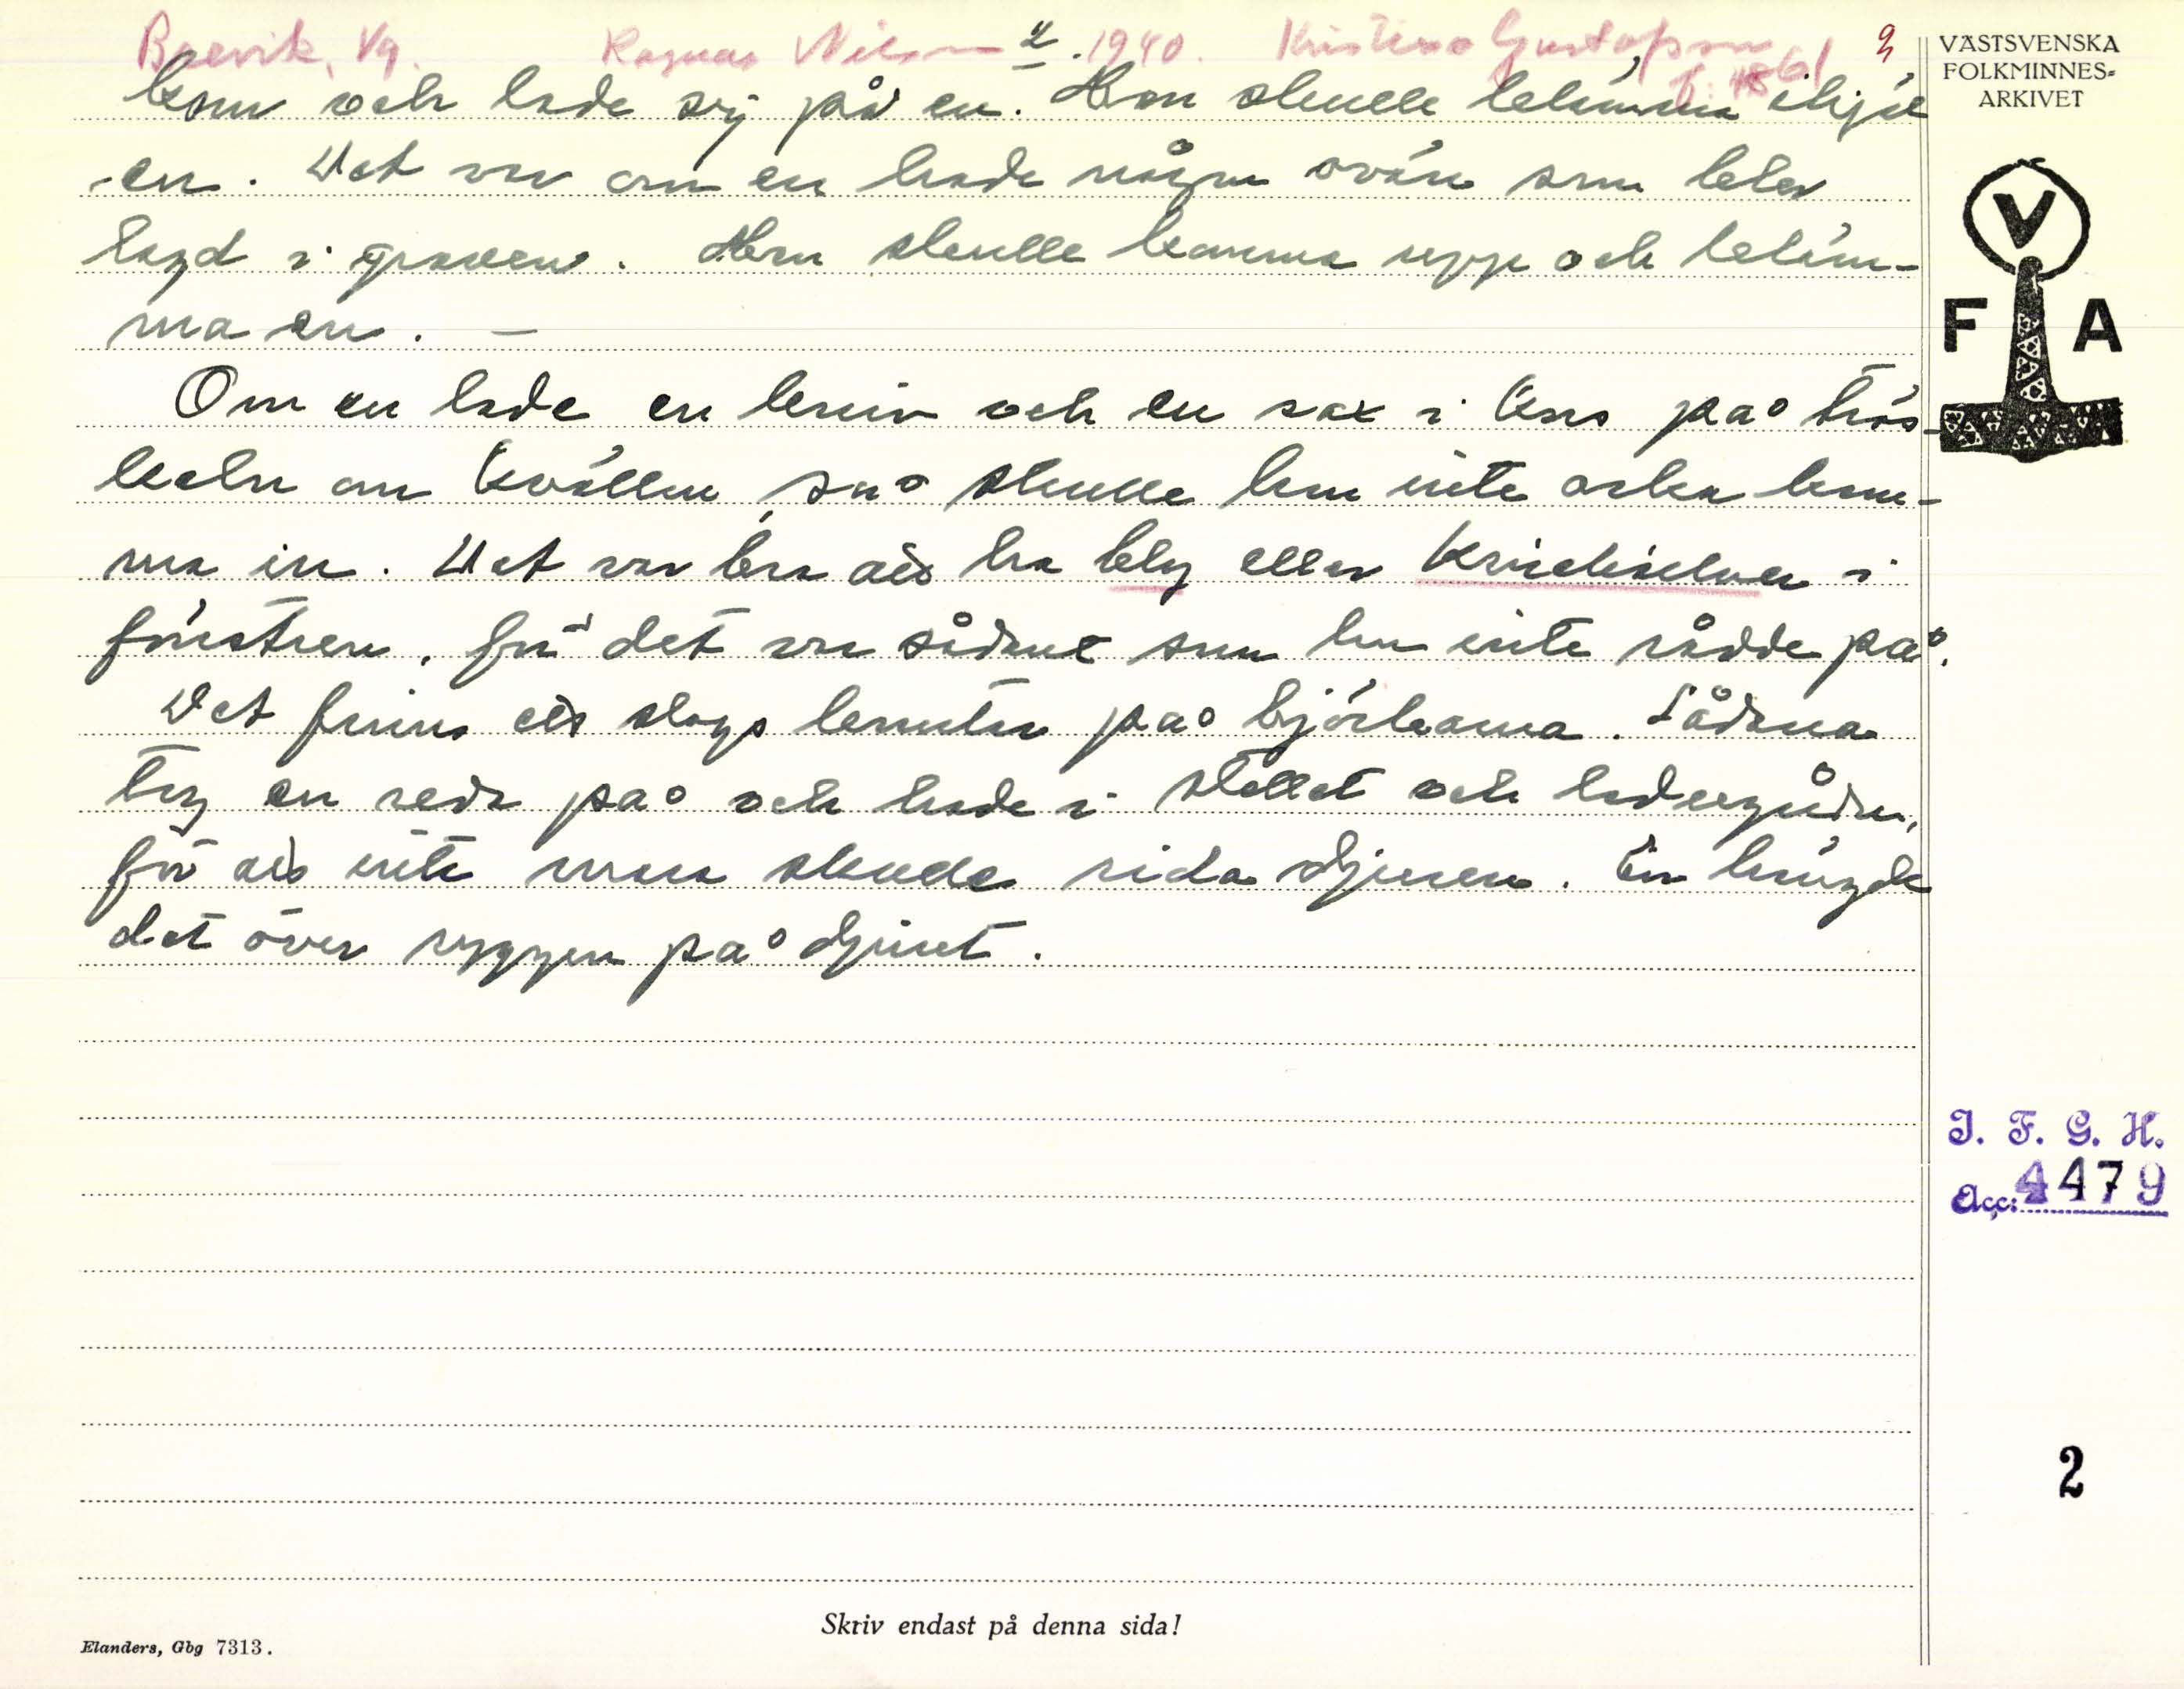 Brevik, Vg. Ragnar Nilsson 4. 1940. Kristina Gustafsson 2
f. 1861
kom och lade sej på en. Hon skulle klämma ihjäl
en. Det var om en hade någon ovän som blev
lagd i graven. Hon skulle komma upp och kläm-
ma en. –
Om en lade en kniv och en sax i kors på trös-
keln om kvällen, så skulle hon inte orka kom-
ma in. Det var bra att ha bly eller i
fönstren, för det var sådant som hon inte rådde på.
Det finns ett slags knutar på björkarna. Sådana
tog en reda på och hade i stallet och ladugården,
för att inte mara skulle rida djuren. En hängde
det över ryggen på djuret.
VÄSTSVENSKA
FOLKMINNES-
ARKIVET
V
F A
I. F. G. H.
Acc: 4479
2
Skriv endast på denna sida!
Elanders, Gbg 7313.